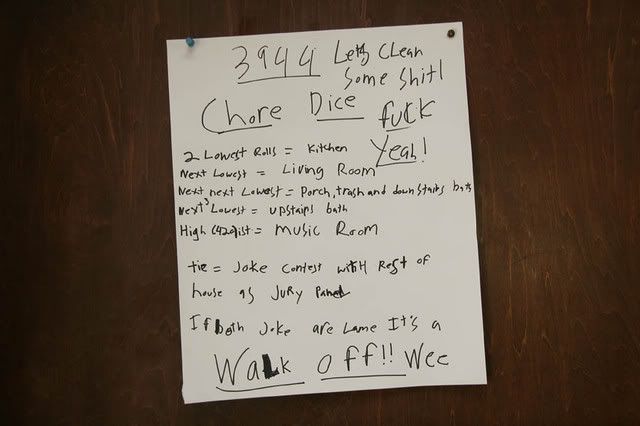 3944 Lets Clean
Some Shit!
Chore Dice fuck
Yeah!
2 Lowest Rolls = Kitchen
Next Lowest = Living Room
Next next Lowest = Porch, trash and downstairs bath
Next³ Lowest = upstairs bath
High (420)ist = Music Room
tie = Joke Contest with Rest of
house as Jury Panel
If both Joke are Lame It's a
Walk Off!! Wee